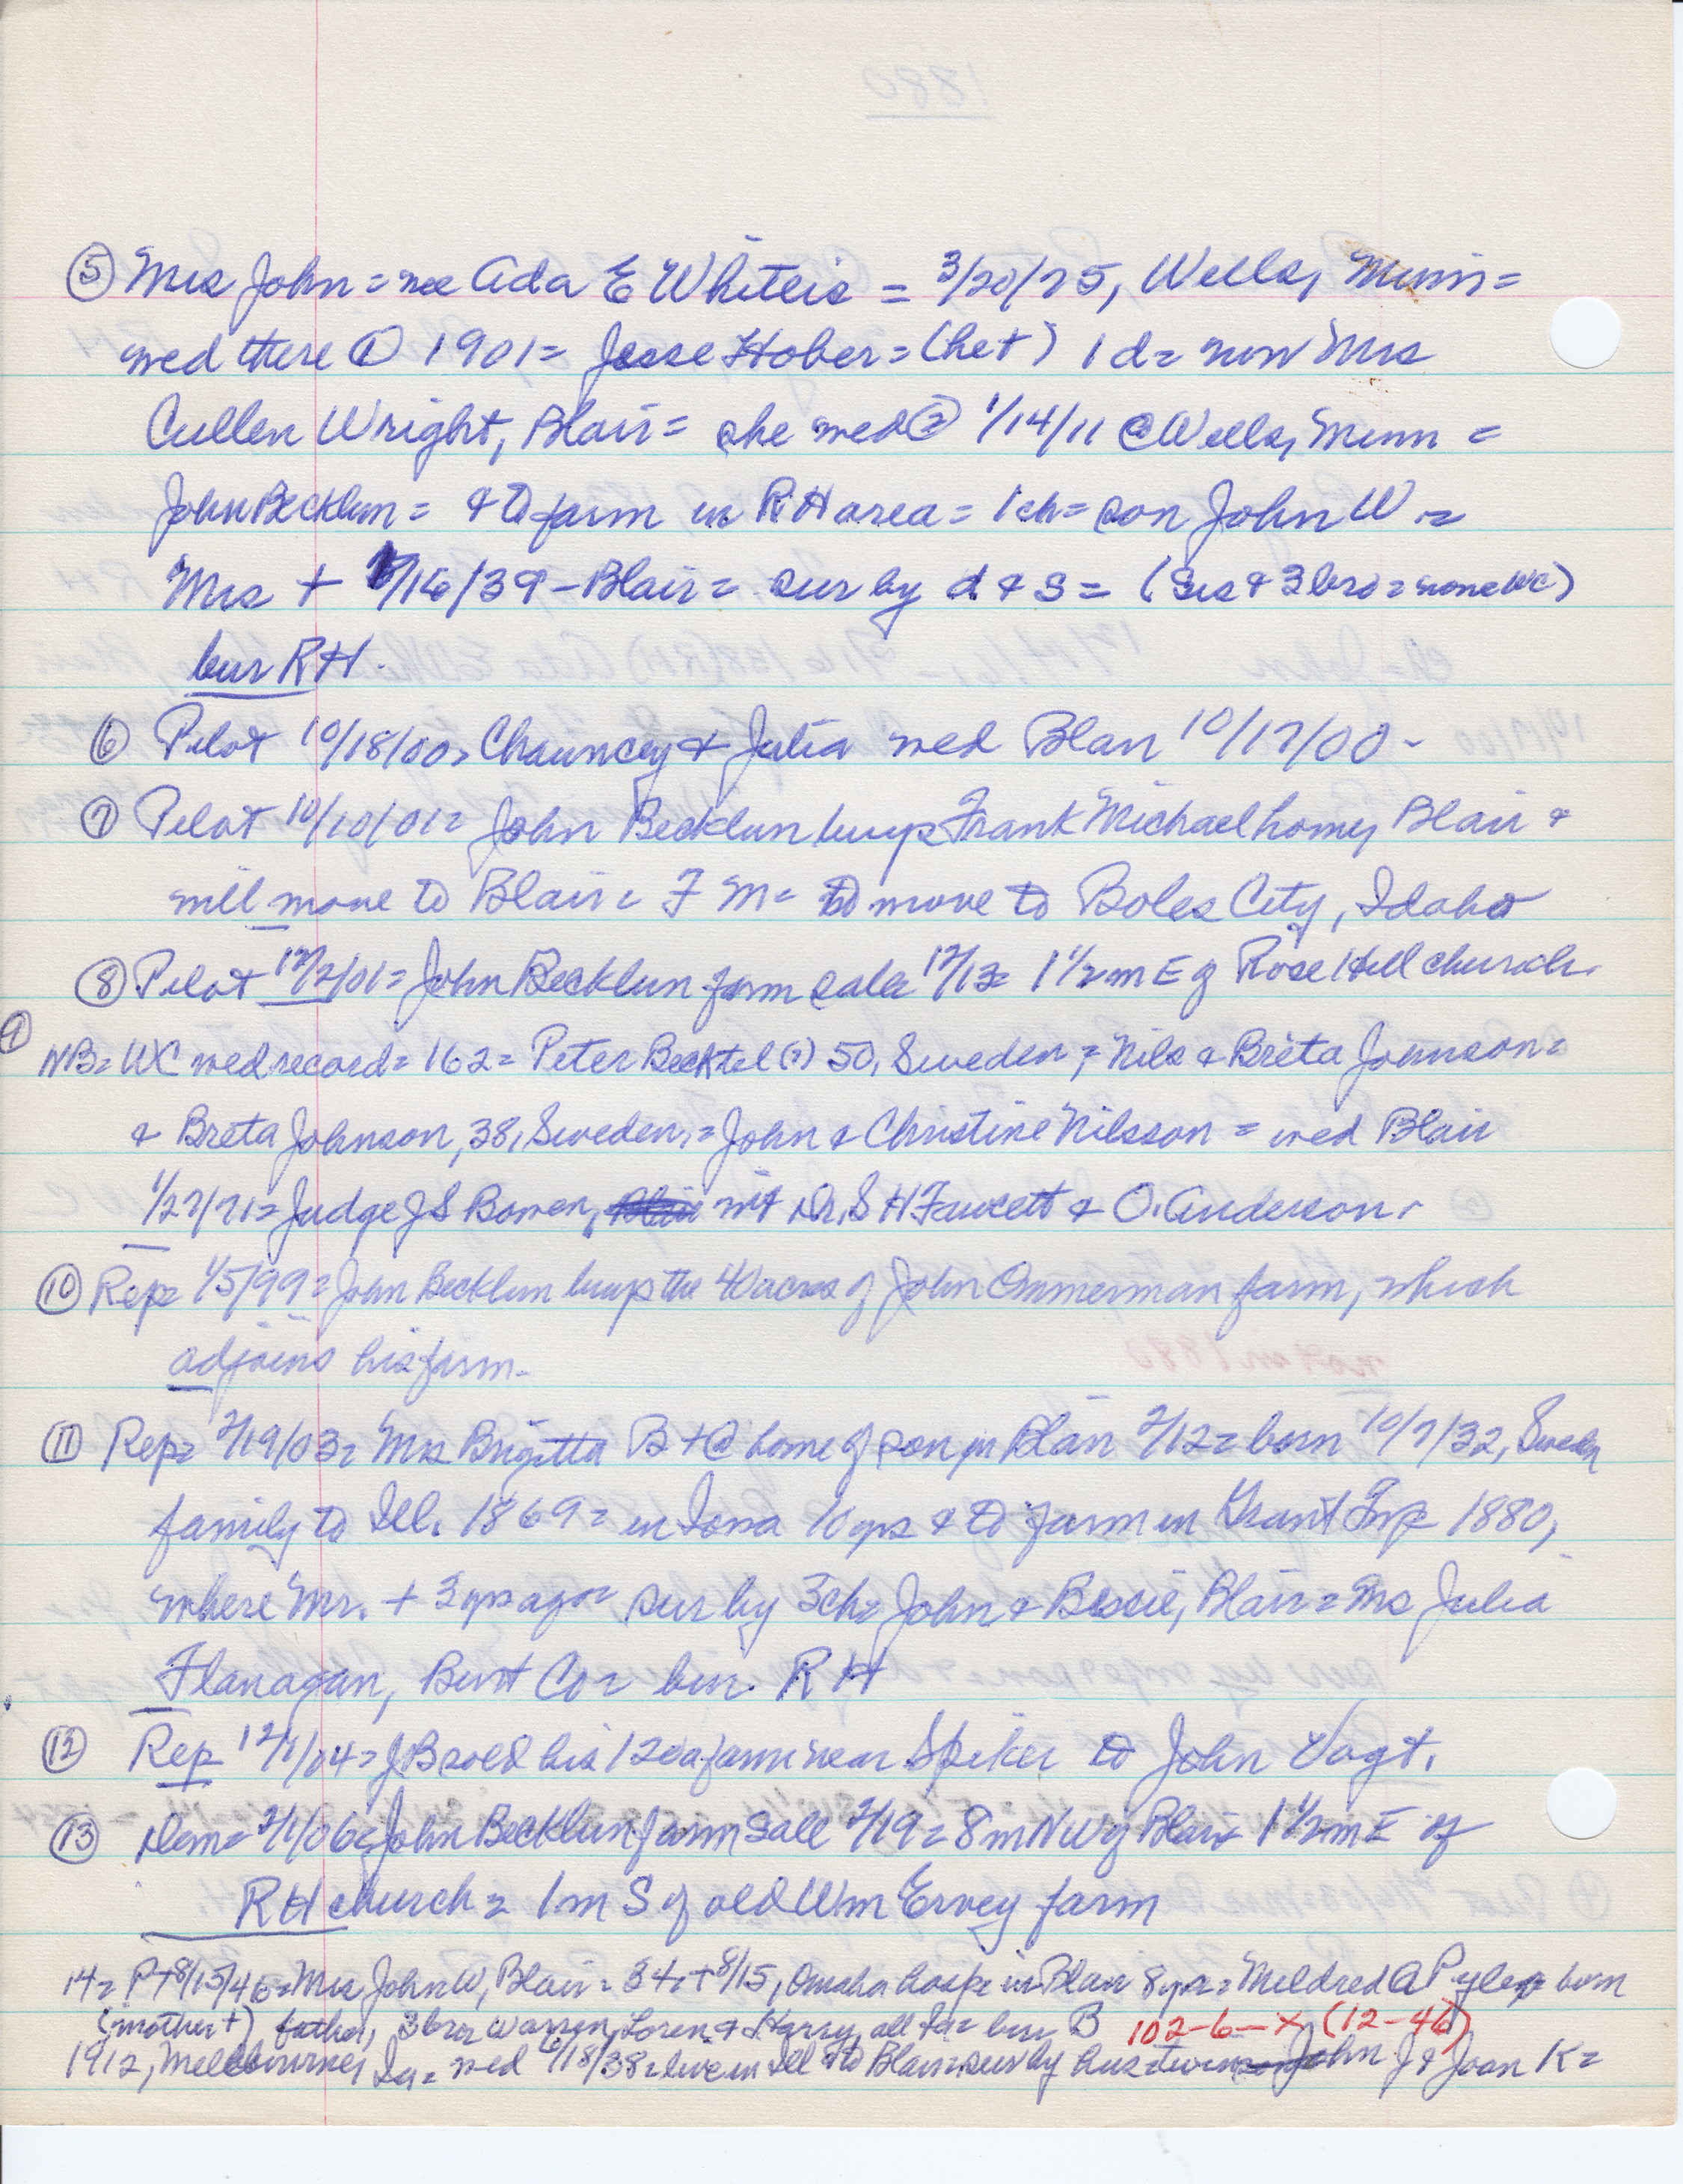 ⑤ Mrs John = nee Ada E Whiteis = 3/20/75, Wells, Minn =
wed there ① 1901 = Jesse Hober = (he+) 1 d = now Mrs
Cullen Wright, Blair = she wed ② 1/14/11 @ Wells, Minn =
John Becklun = & to farm in RH area = 1 ch = son John W =
Mrs + /16/39 - Blair = sur by d & s = (sis & 3 bro = none WC)
bur RH.
⑥ Pilot 10/18/00, Chauncey & Julia wed Blair 10/17/00 -
⑦ Pilot 10/10/01 = John Becklun buys Frank Michael home, Blair &
will move to Blair = F M = to move to Boles City, Idaho
⑧ Pilot 12/2/01 = John Becklun farm sale 12/13 = 1 1/2 m E of Rose Hill church.
⑨ NB = WC wed record = 162 = Peter Becktel (?) 50, Sweden, = Nils & Breta Johnson =
& Breta Johnson, 38, Sweden, = John & Christine Nilsson = wed Blair
1/27/71 = Judge J S Bowen, wit Dr. S H Fawcett & O. Anderson.
⑩ Rep = 1/5/99 = John Becklun buys the 40 acres of John Ommerman farm, which
adjoins his farm.
⑪ Rep = 2/19/03 = Mrs Brigitta B + @ home of son in Blair 2/12 = born 10/7/32, Sweden
family to Ill. 1869 = in Iowa 10 yrs & to farm in Grant Twp 1880,
where Mr. + 3 yrs ago = sur by 3 ch = John & Bessie, Blair = Mrs Julia
Flanagan, Burt Co = bur. RH
⑫ Rep 12/1/04 = J B sold his 120 a farm near Spiker to John Vogt.
⑬ Dem = 2/1/06 = John Becklun farm sale 2/19 = 8 m NW of Blair 1 1/2 m E of
RH church = 1 m S of old Wm Ervey farm
14 = PT 8/15/46 = Mrs John W, Blair = 34, + 8/15, Omaha hosp = in Blair 8 yrs = Mildred A Pyle = born
(mother +) father, 3 bro = Warren, Loren & Harry, all Ia = bur B 102-6-X (12-46)
1912, Melbourne, Ia = wed 6/18/38 = live in Ill & to Blair = sur by hus = twins John J & Joan K =